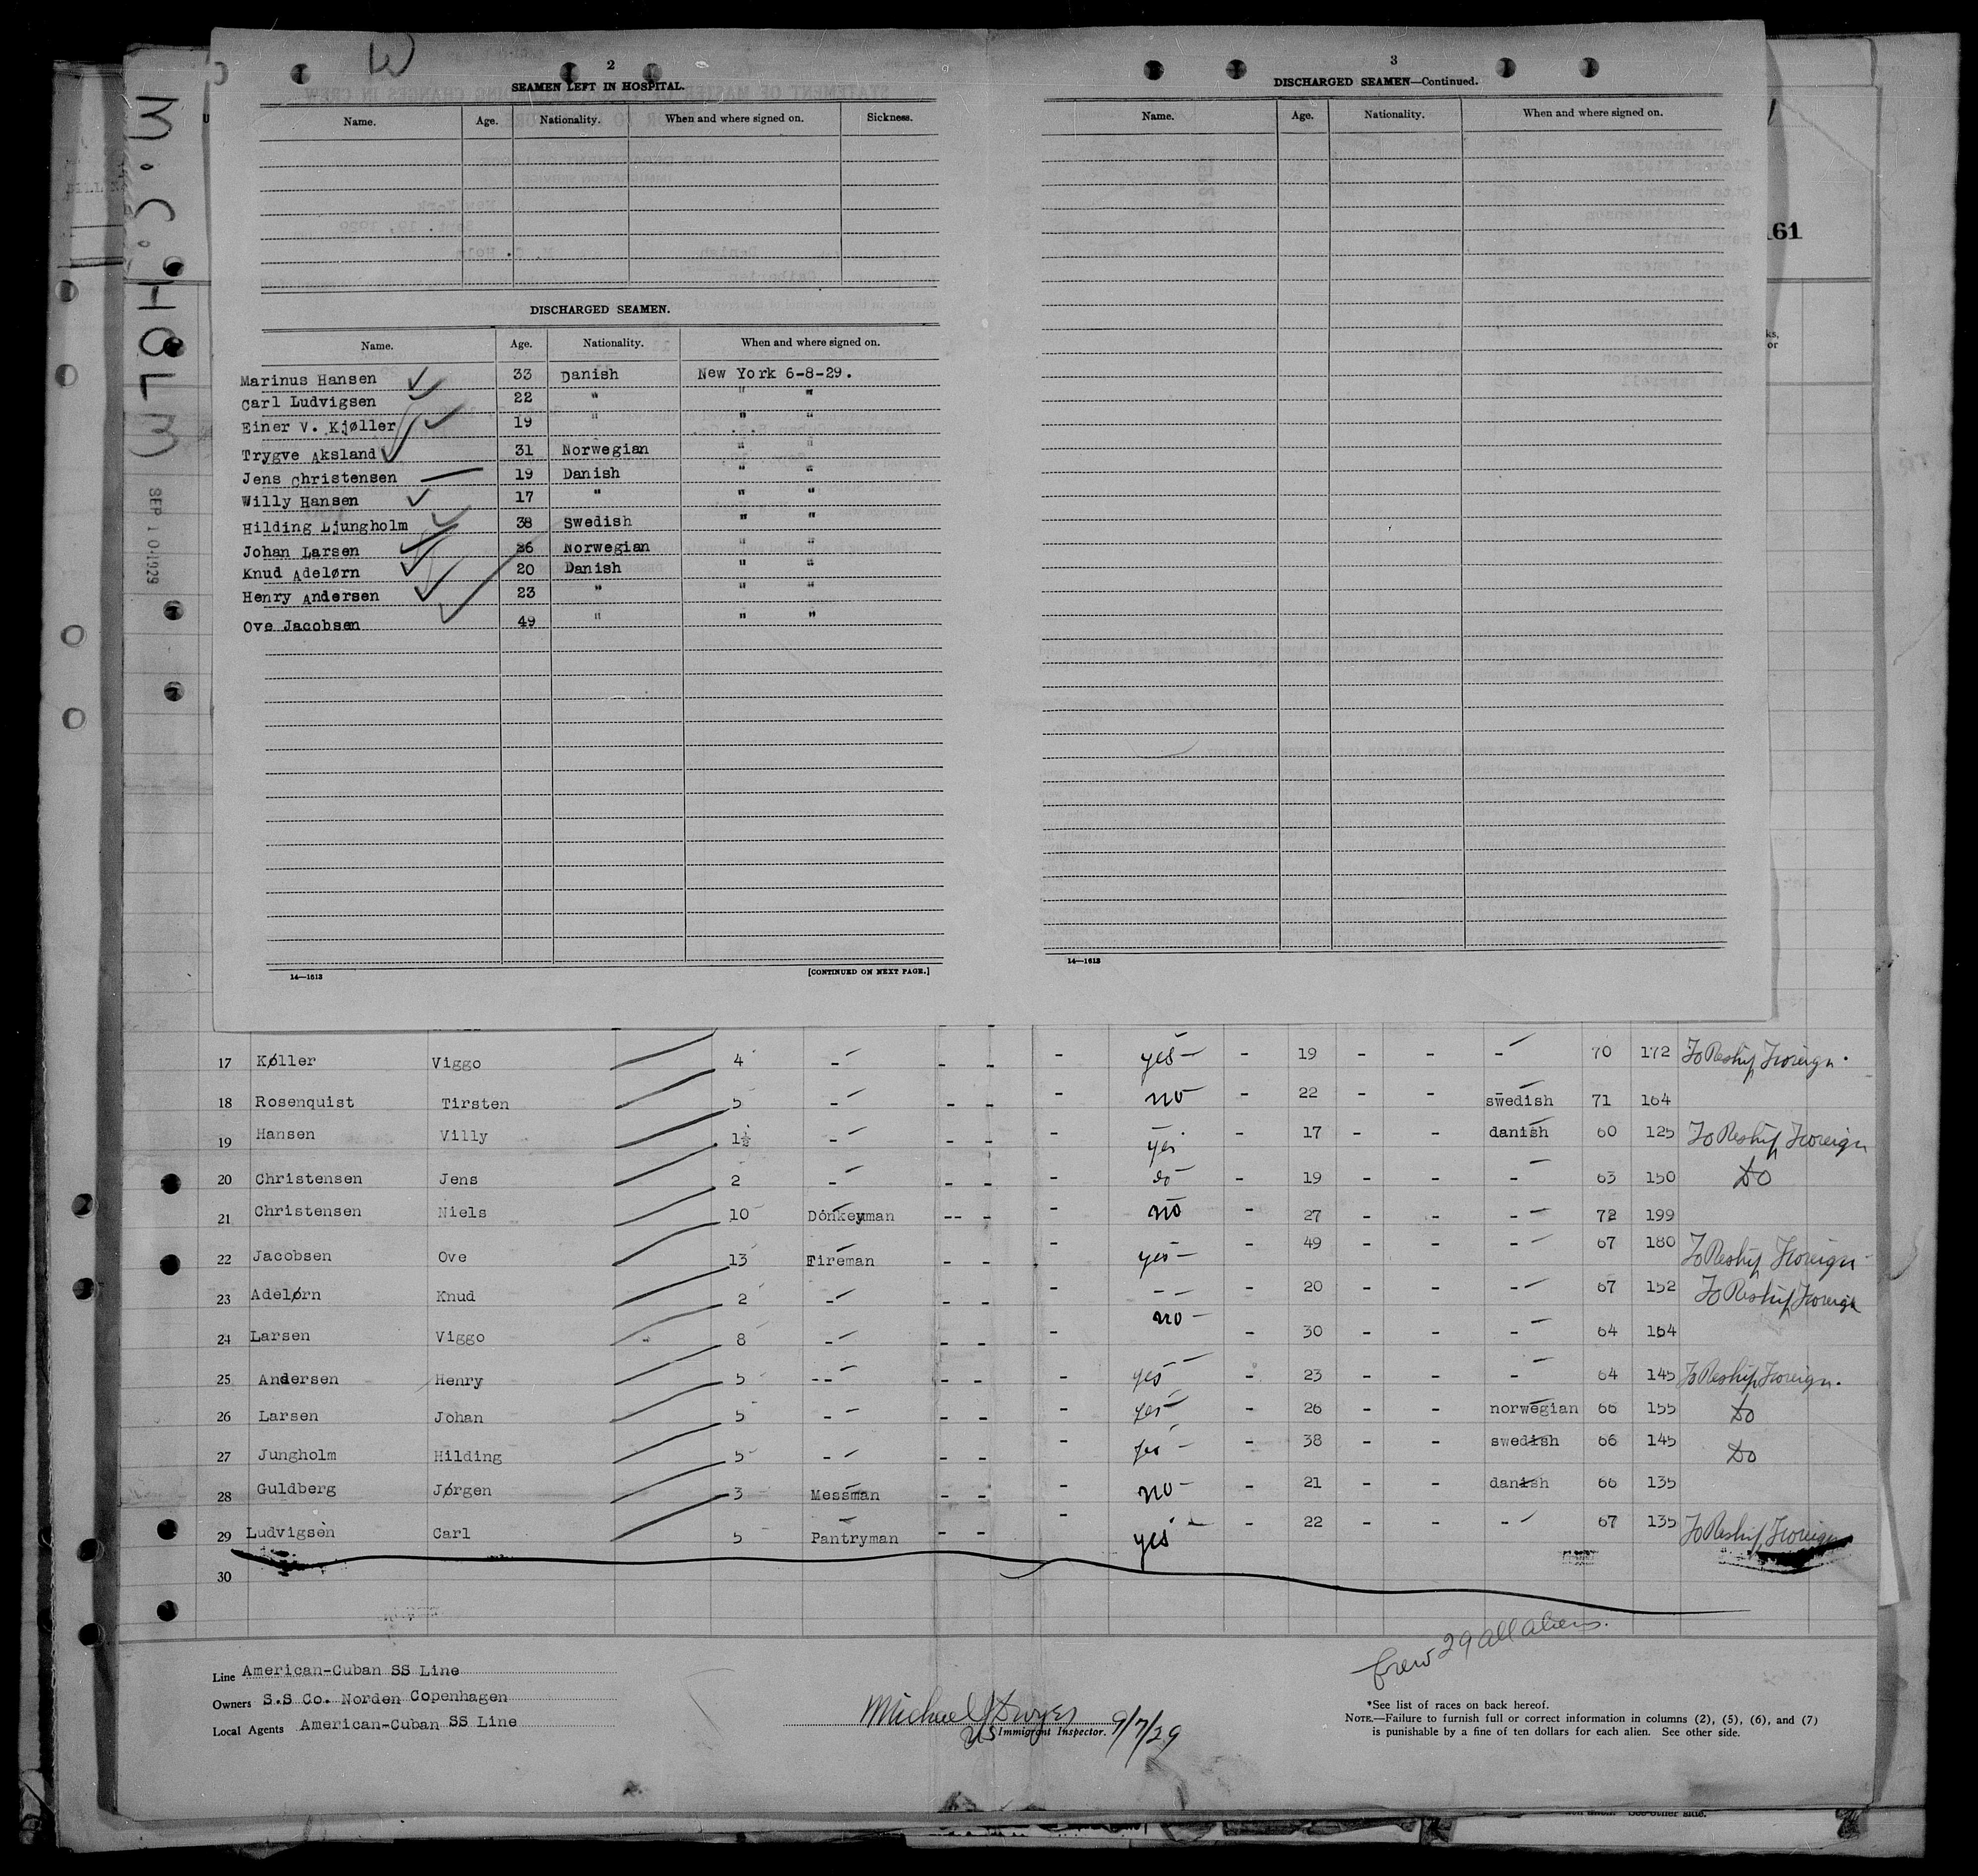 W
M.C. HOLM
SEP 10 1929
2
SEAMEN LEFT IN HOSPITAL.
Name. Age. Nationality. When and where signed on. Sickness.
DISCHARGED SEAMEN.
Name. Age. Nationality. When and where signed on.
Marinus Hansen 33 Danish New York 6-8-29.
Carl Ludvigsen 22 " " "
Einer V. Kjøller 19 " " "
Trygve Aksland 31 Norwegian " "
Jens Christensen 19 Danish " "
Willy Hansen 17 " " "
Hilding Ljungholm 38 Swedish " "
Johan Larsen 26 Norwegian " "
Knud Adelørn 20 Danish " "
Henry Andersen 23 " " "
Ove Jacobsen 49 " " "
14—1613 [CONTINUED ON NEXT PAGE.]
3
DISCHARGED SEAMEN—Continued.
Name. Age. Nationality. When and where signed on.
14—1613
161
ks,
or
17 Køller Viggo 4 - - - - yes - 19 - - - 70 172 To Reship Foreign.
18 Rosenquist Tirsten 5 - - - - no - 22 - - swedish 71 164
19 Hansen Villy 1½ - - - - yes - 17 - - danish 60 125 To Reship Foreign
20 Christensen Jens 2 - - - - do - 19 - - - 63 150 Do
21 Christensen Niels 10 Donkeyman -- - - no - 27 - - - 72 199
22 Jacobsen Ove 13 Fireman - - - yes - 49 - - - 67 180 To Reship Foreign
23 Adelørn Knud 2 - - - - -- - 20 - - - 67 152 To Reship Foreign
24 Larsen Viggo 8 - - - - no - 30 - - - 64 164
25 Andersen Henry 5 -- - - - yes - 23 - - - 64 145 To Reship Foreign.
26 Larsen Johan 5 - - - - yes - 26 - - norwegian 66 155 Do
27 Jungholm Hilding 5 - - - - yes - 38 - - swedish 66 145 Do
28 Guldberg Jørgen 3 Messman - - - no - 21 - - danish 66 135
29 Ludvigsen Carl 5 Pantryman - - - yes - 22 - - - 67 135 To Reship Foreign
30
Crew 29 all aliens.
Line American-Cuban SS Line
Owners S.S Co. Norden Copenhagen
Local Agents American-Cuban SS Line
Michael J Dwyer
US Immigrant Inspector. 9/7/29
*See list of races on back hereof.
NOTE.—Failure to furnish full or correct information in columns (2), (5), (6), and (7)
is punishable by a fine of ten dollars for each alien. See other side.
See other side.